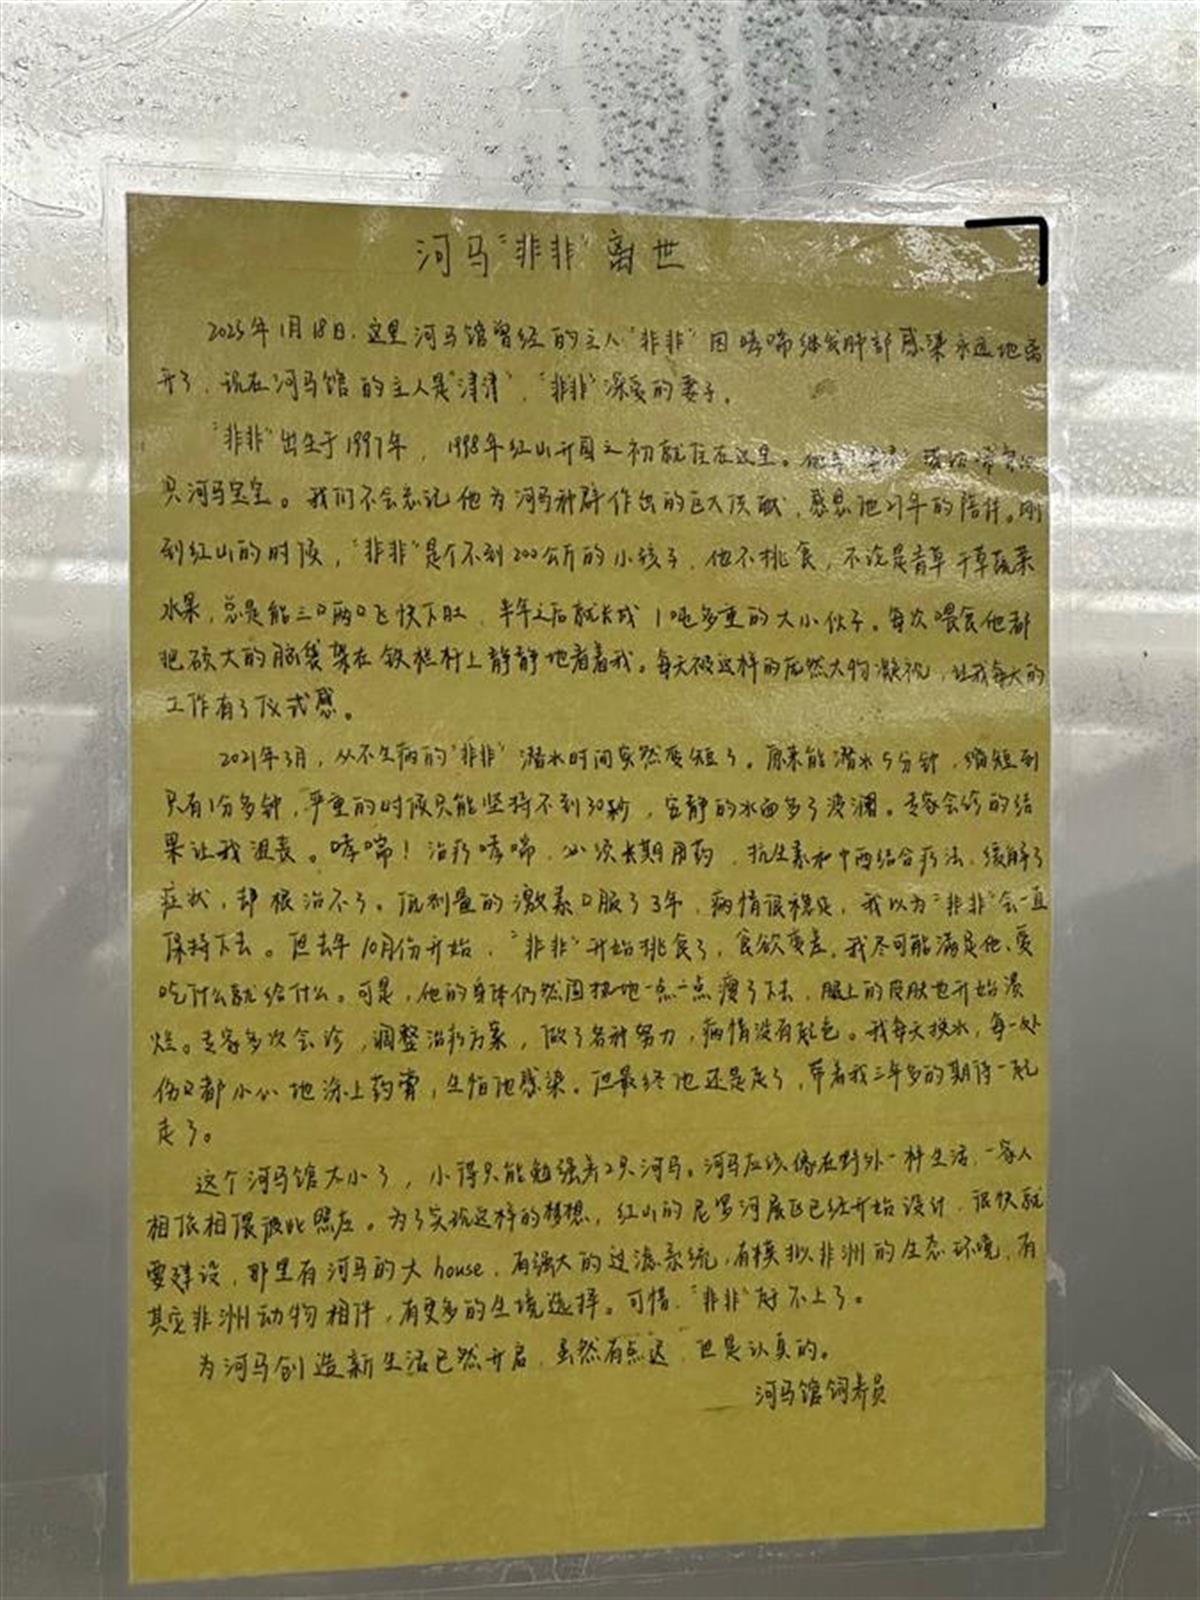 河马“非非”离世
2025年1月18日，这里河马馆曾经的主人“非非”因哮喘继发肺部感染永远地离
开了，现在河马馆的主人是“津津”，“非非”深爱的妻子。
“非非”出生于1997年，1998年红山开园之初就住在这里。他
只河马宝宝。我们不会忘记他为河马种群作出的巨大贡献，感恩他27年的陪伴。刚
到红山的时候，“非非”是个不到200公斤的小孩子，他不挑食，不论是青草干草蔬菜
水果，总是能三口两口飞快下肚，半年之后就长成1吨多重的大小伙子。每次喂食他都
把硕大的脑袋架在铁栏杆上静静地看着我。每天被这样的庞然大物凝视，让我每天的
工作有了仪式感。
2021年3月，从不生病的“非非”潜水时间突然变短了。原来能潜水5分钟，缩短到
只有1分多钟，严重的时候只能坚持不到30秒，安静的水面多了波澜。专家会诊的结
果让我沮丧。哮喘！治疗哮喘，必须长期用药，抗生素和中西结合疗法，缓解了
症状，却根治不了。低剂量的激素口服了3年，病情很稳定，我以为“非非”会一直
保持下去。但去年10月份开始，“非非”开始挑食了，食欲变差。我尽可能满足他，爱
吃什么就给什么。可是，他的身体仍然固执地一点一点瘦了下去，腿上的皮肤也开始溃
烂。专家多次会诊，调整治疗方案，做了各种努力，病情没有起色。我每天换水，每一处
伤口都小心地涂上药膏，生怕他感染。但最终他还是走了，带着我三年多的期待一起
走了。
这个河马馆太小了，小得只能勉强养2只河马。河马应该像在野外一种生活，一家人
相依相偎彼此照应。为了实现这样的梦想，红山的尼罗河展区已经开始设计，很快就
要建设，那里有河马的大house，有强大的过滤系统，有模拟非洲的生态环境，有
其它非洲动物相伴，有更多的生境选择。可惜，“非非”赶不上了。
为河马创造新生活已然开启，虽然有点迟，但是认真的。
河马馆饲养员